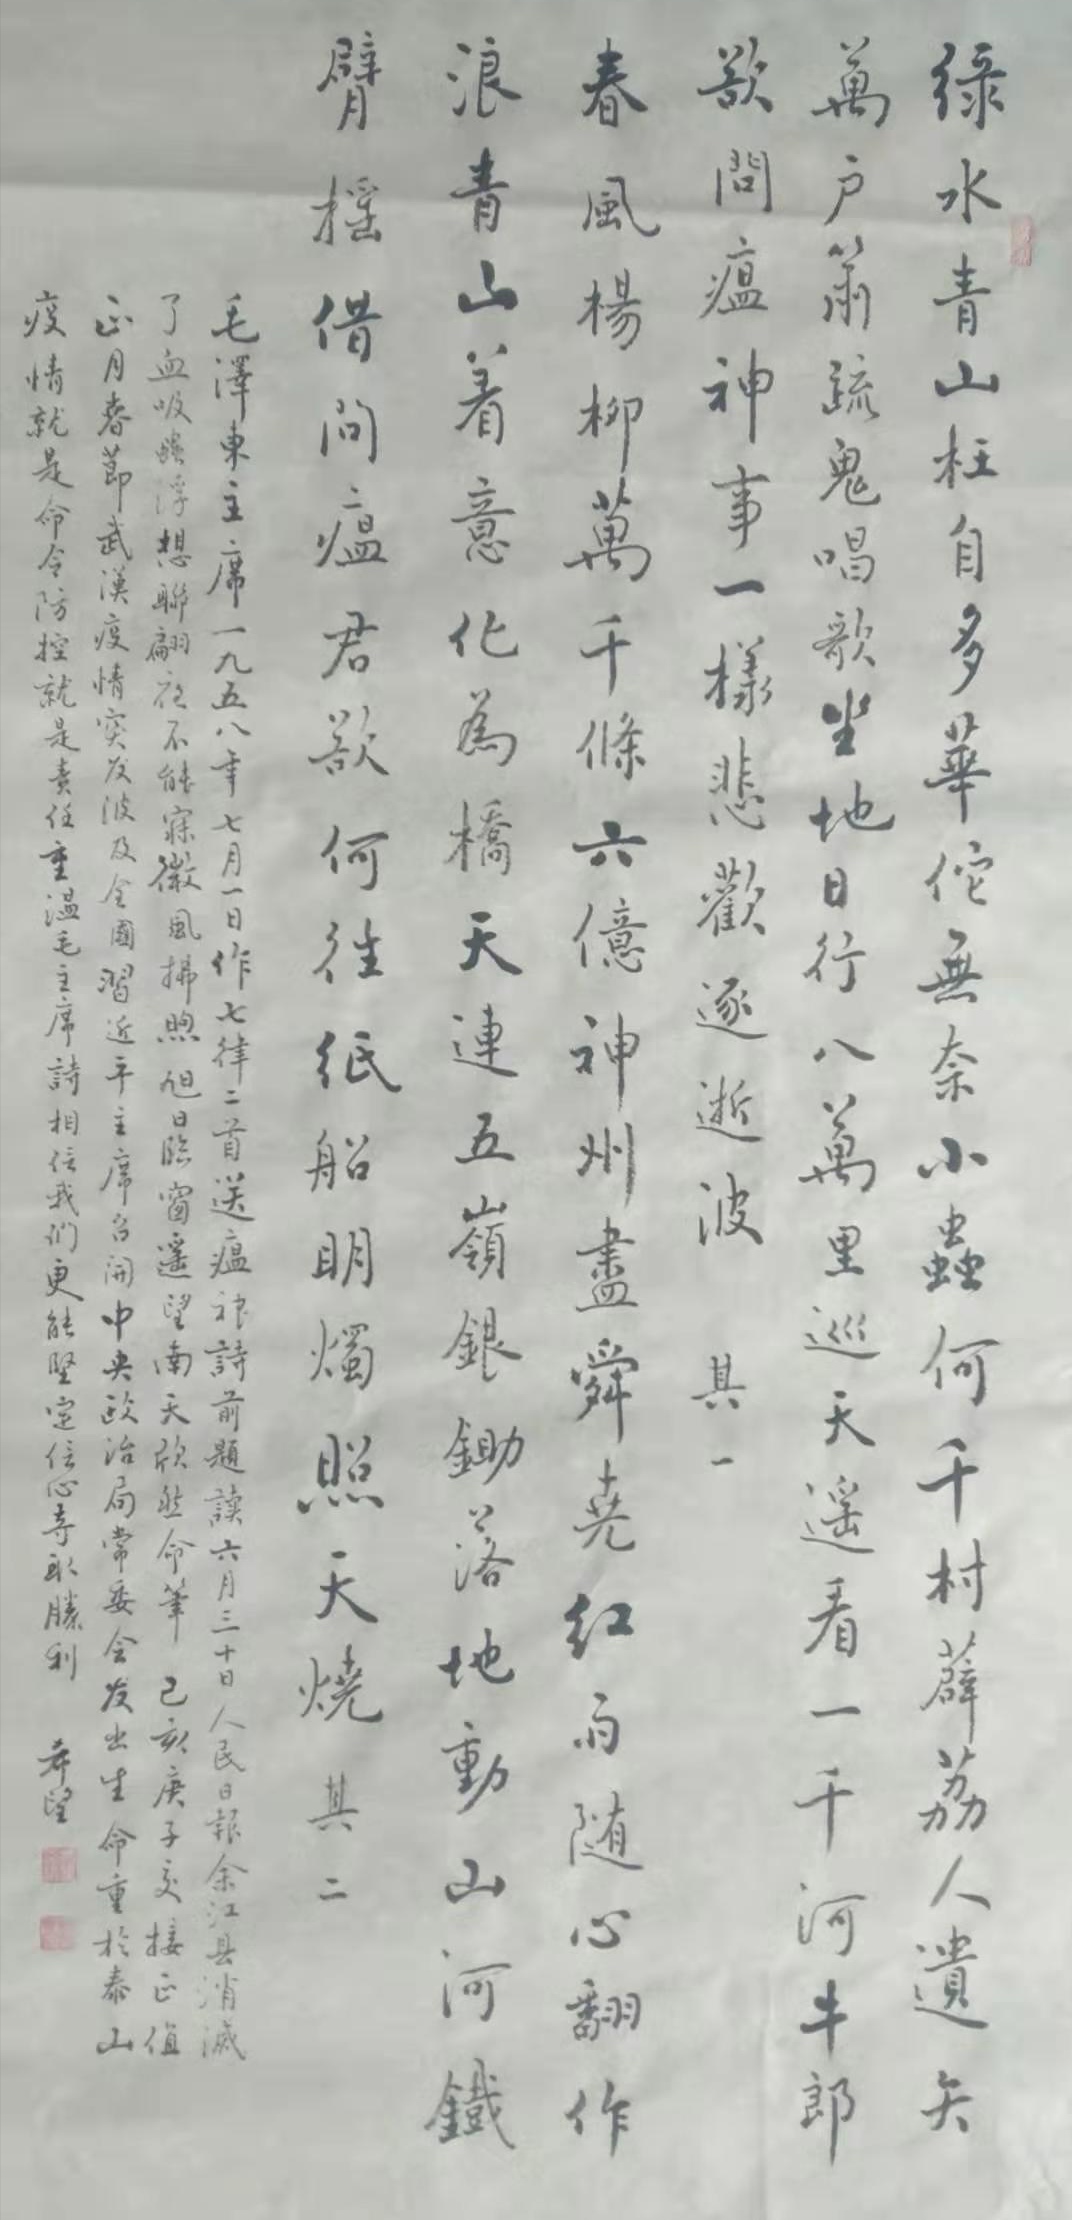 綠水青山枉自多華佗無奈小蟲何千村薜荔人遺矢
萬户箫疏鬼唱歌坐地日行八萬里巡天遥看一千河牛郎
欲問瘟神事一樣悲歡逐逝波 其一
春風楊柳萬千條六億神州盡舜堯红雨随心翻作
浪青山着意化為橋天連五嶺銀鋤落地動山河鐵
臂摇借问瘟君欲何往纸船明燭照天燒 其二
毛澤東主席一九五八年七月一日作七律二首送瘟神詩前題讀六月三十日人民日報余江县消滅
了血吸蟲浮想聯翩夜不能寐微風拂煦旭日臨窗遥望南天欣然命筆 己亥庚子交接正值
正月春節武漢疫情突发波及全國習近平主席召開中央政治局常委会发出生命重於泰山
疫情就是命令防控就是责任重温毛主席詩相信我们更能堅定信心夺取勝利 希望